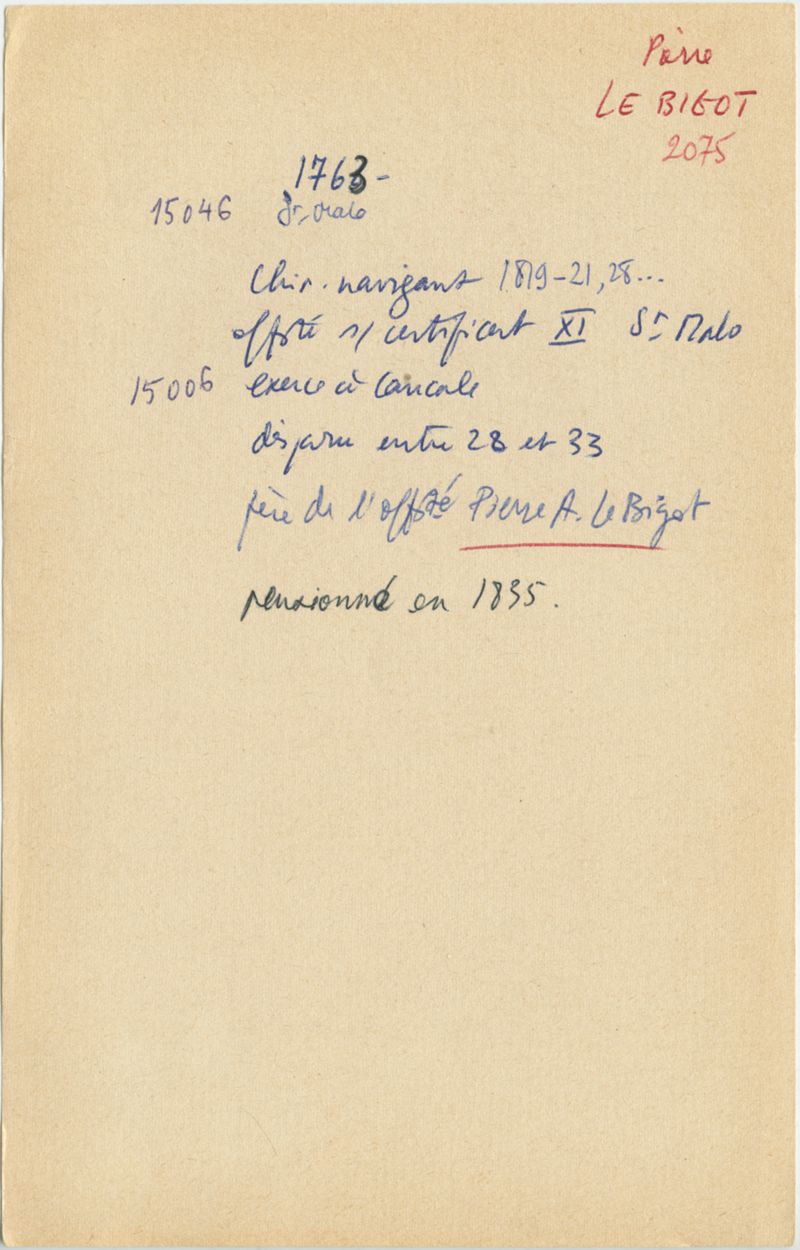 Pierre
LE BIGOT
2075
1763-
15046 St. Malo
Chir. navigant 1819-21, 28...
offsté s/ certificat XI St Malo
15006 exerce à Cancale
disparu entre 28 et 33
père de l'offsté Pierre A. Le Bigot
pensionné en 1835.